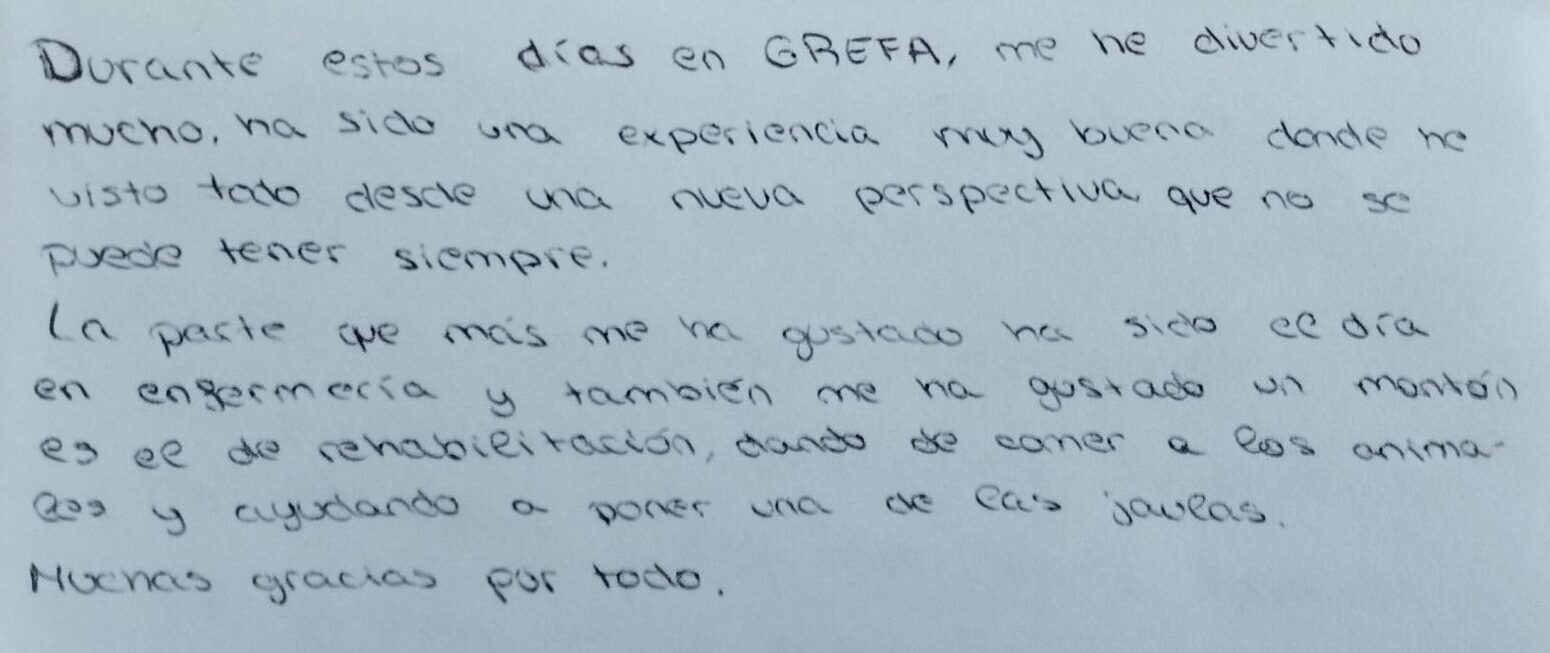 Durante estos días en GREFA, me he divertido
mucho, ha sido una experiencia muy buena donde he
visto todo desde una nueva perspectiva que no se
puede tener siempre.
La parte que más me ha gustado ha sido el día
en enfermería y también me ha gustado un montón
es el de rehabilitación, dando de comer a los anima-
les y ayudando a poner una de las jaulas.
Muchas gracias por todo.